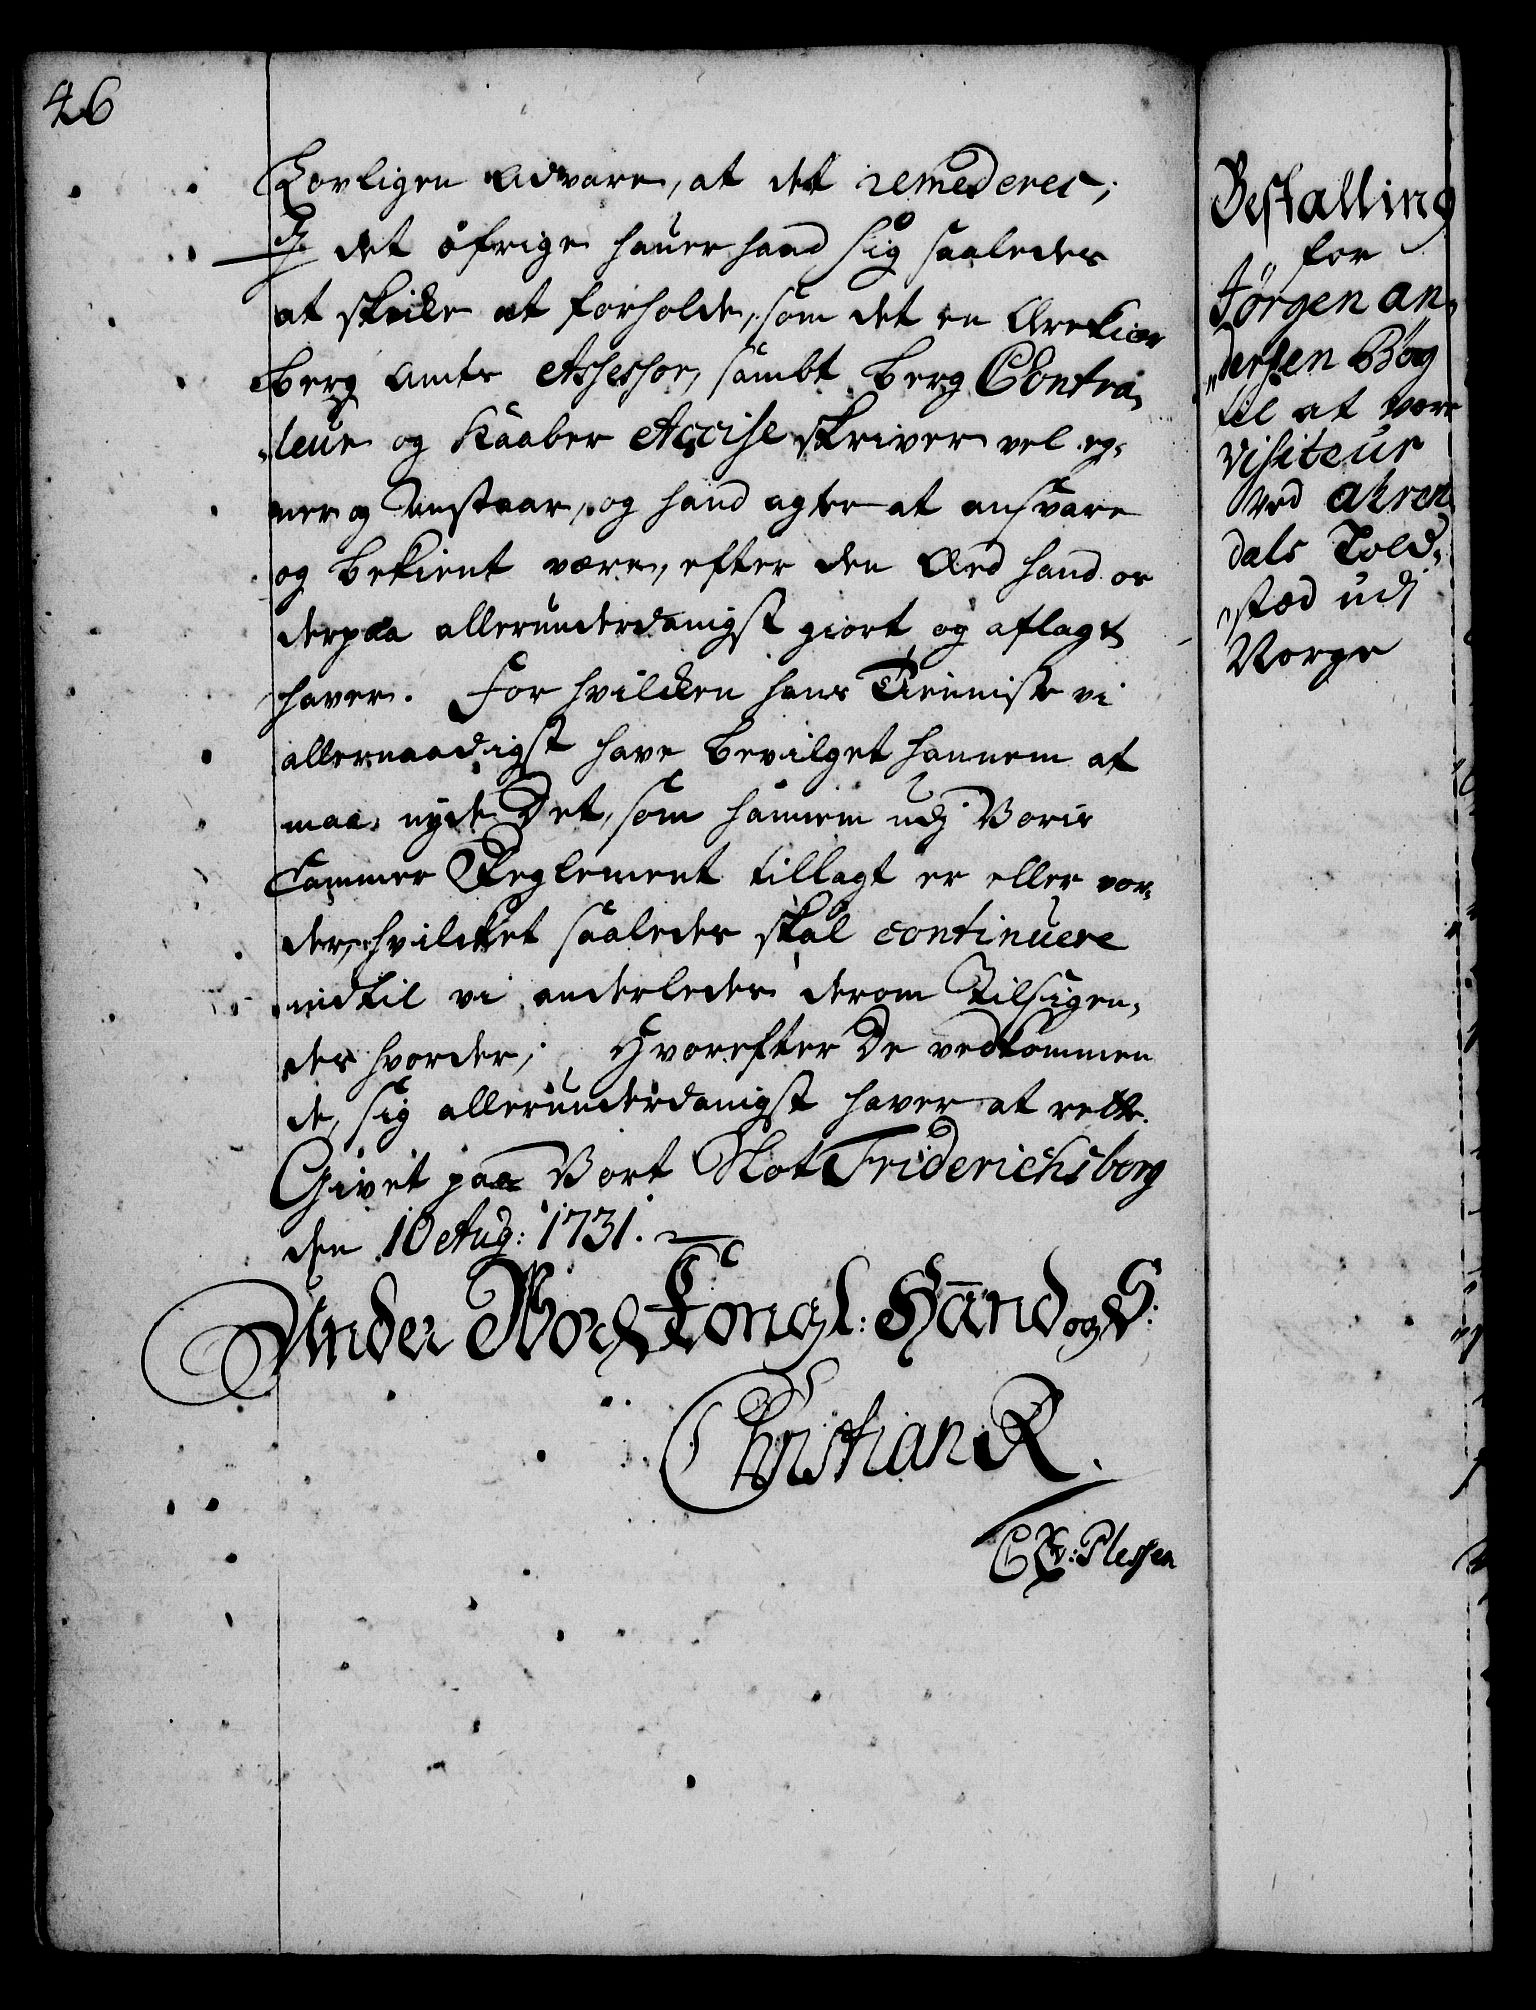 46
Lovligen advare, at det remederes;
I det öfrige hauer hand sig saaledes
at skicke at forholde, som det en Ærekier
berg Amts Assessor, sambt Berg Contra-
leur og Kaaber Accise skriver vel eg-
ner og Anstaar, og hand agter at ansvare
og bekient være, efter den Æed hand os
derpaa allerunderdanigst giort og aflagt
haver. For hvilcken hans Tienniste vi
allernaadigst have bevilget hannem at
maa nyde Det, som hannem udj Voris
Cammer Reglement tillagt er eller vor-
der, hvilcket saaledes skal continuere
indtil vi anderledes derom Tilsigen-
des hvorder; Hvorefter De vedkommen
de, sig allerunderdanigst haver at rette.
Givet paa Vort Slot Friderichsborg
den 10 Aug: 1731.
Under Vor Kongl: Hånd og S:
Christian R.
C A v: Plessen
Bestalling
for
Jörgen An-
dersen Bög
til at være
Visiteur
ved Ahren
dals Told-
stæd udj
Norge